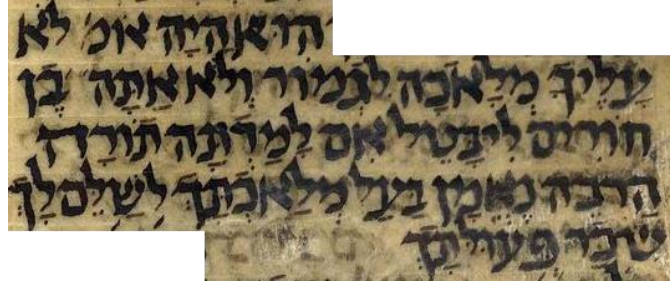 הוא היה אומ' לא
עליך מלאכה לגמור ולא אתה בן
חורים ליבטל אם למדתה תורה
הרבה נאמן בעל מלאכתך לשלם לך
שכר פעולתך